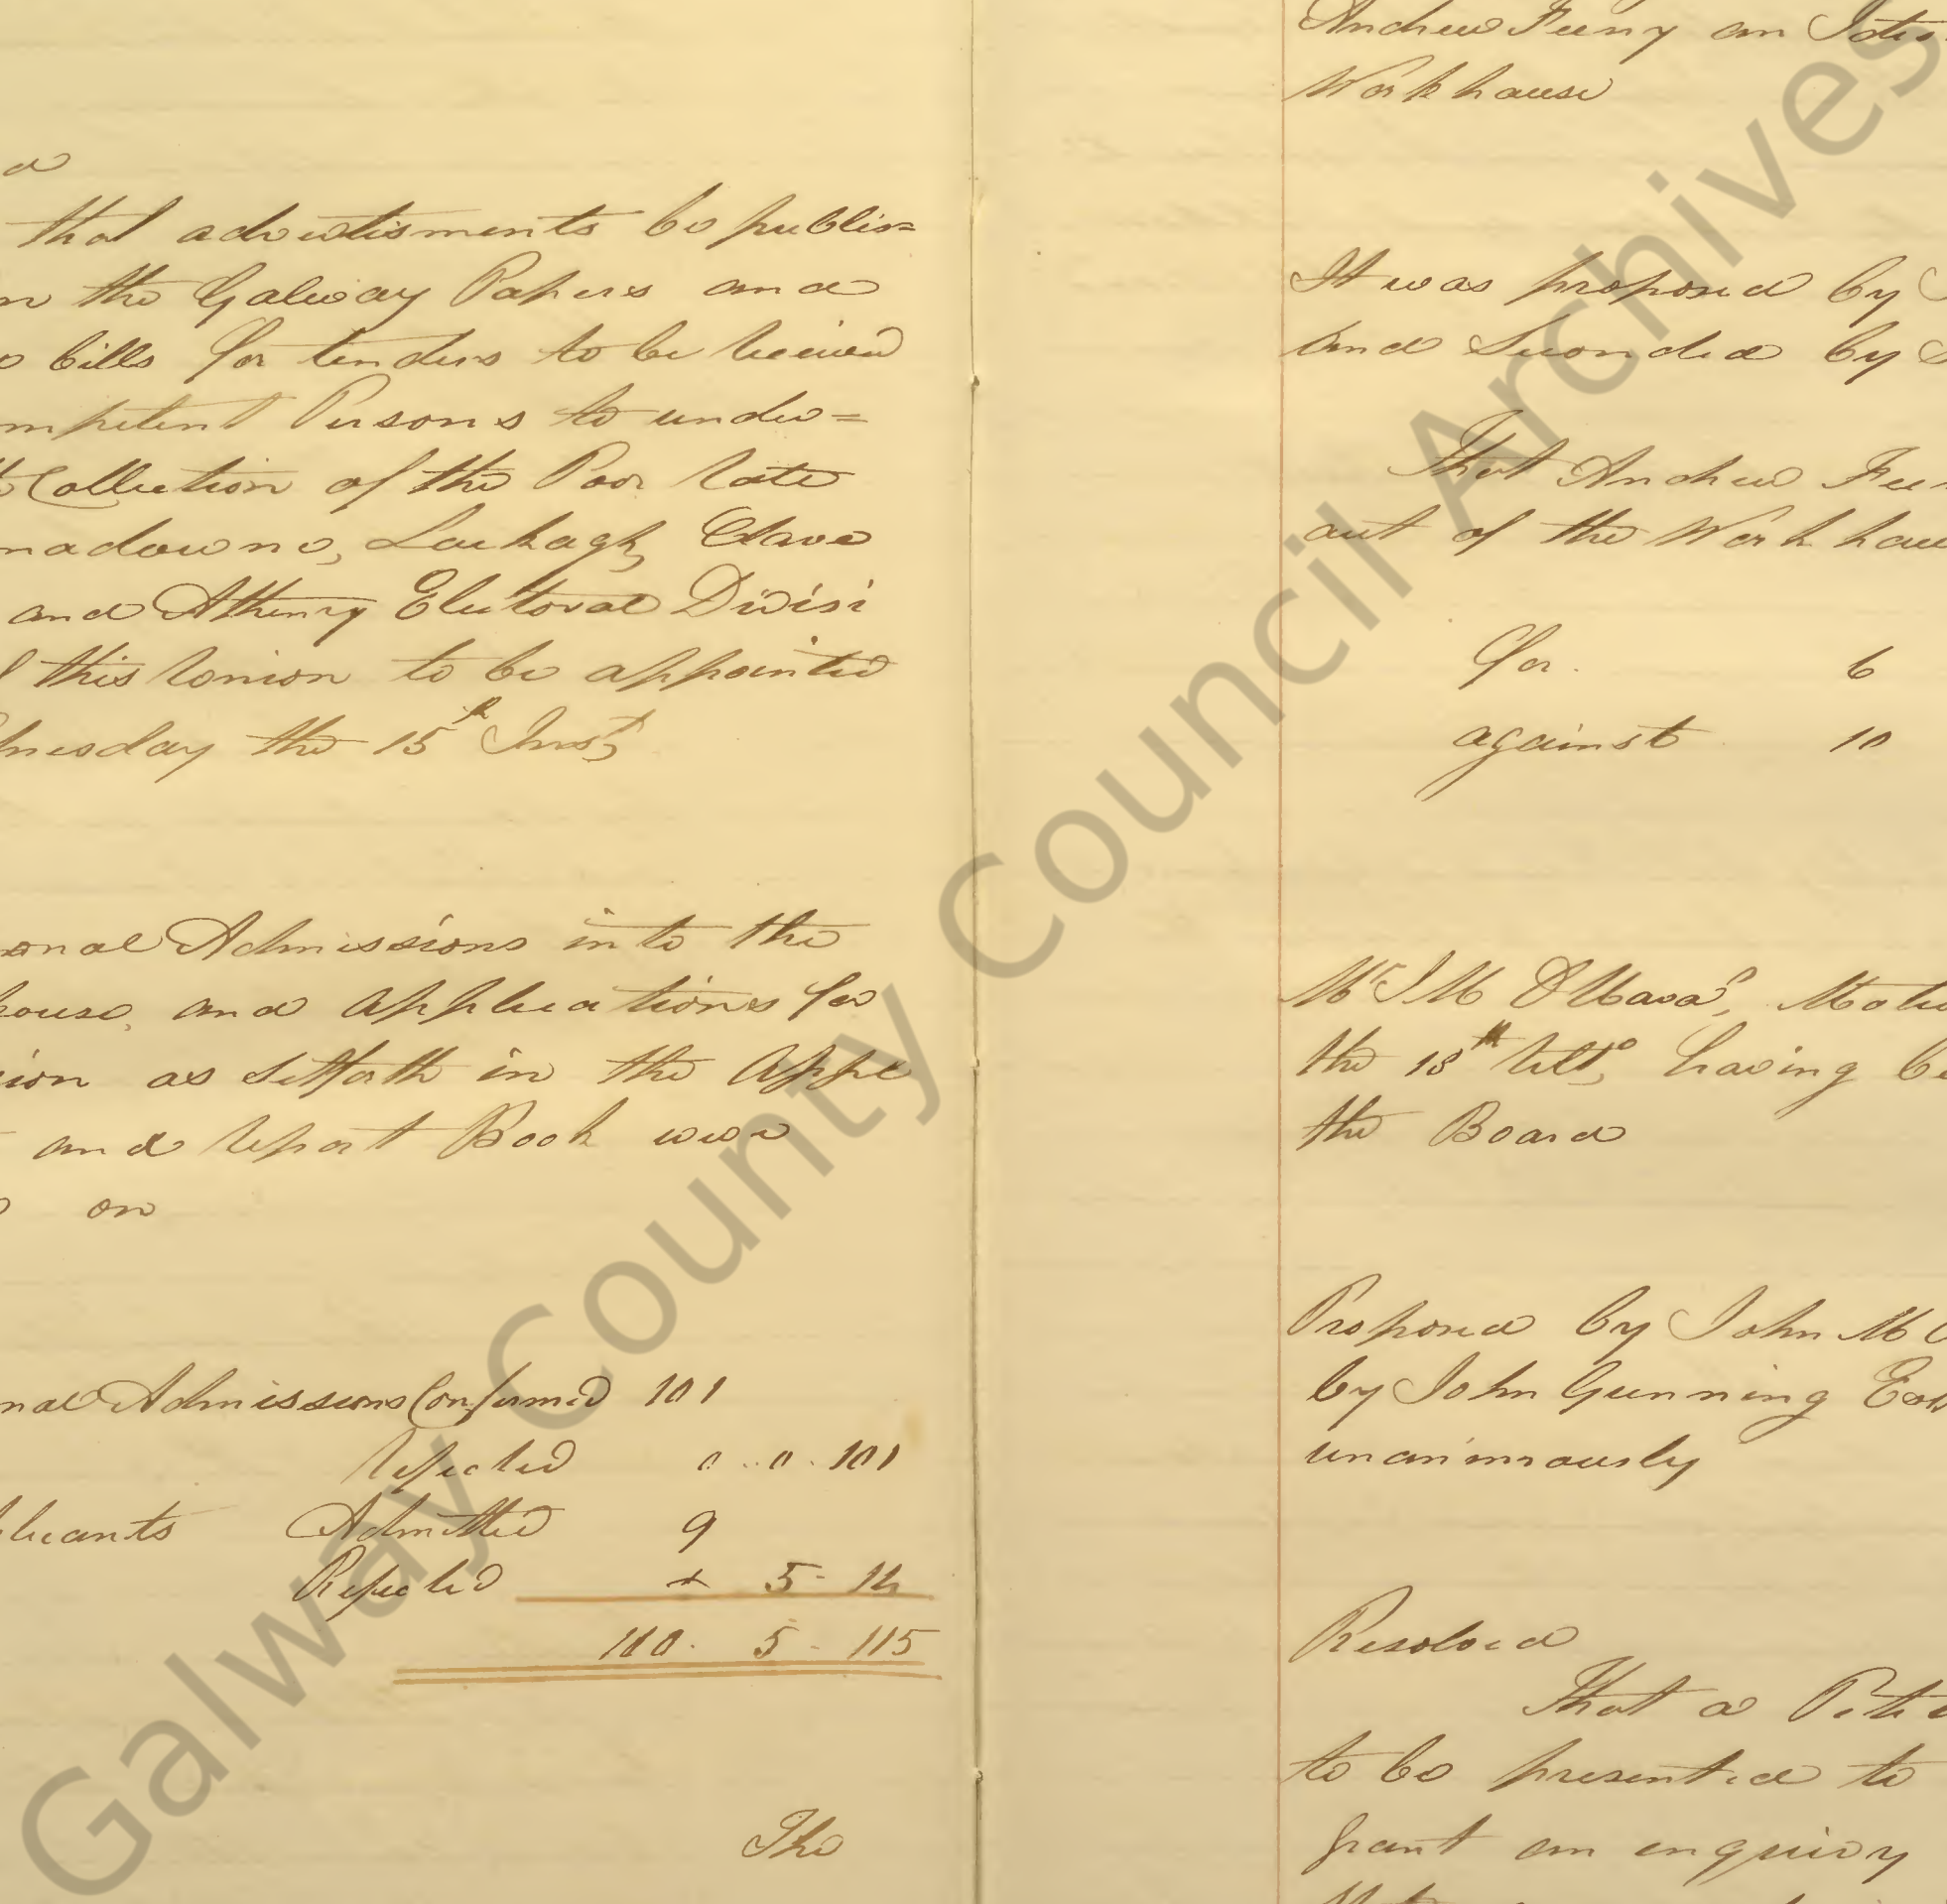 that advertisments be publis=
the Galway Papers and
bills for tenders to be received
mpetent Persons to under=
Collection of the Poor rate
nadowne, Lackagh, Clare
and Athenry Electoral Divisi
this Union to be appointed
nesday the 15th Inst,
onal Admissions into the
house, and applications for
sion as setforth in the appl
and report Book were
on
nal Admissions Confirmed 101
Rejected 0 .. 0 . 101
plicants Admitted 9
Rejected + 5 - 14
110 . 5 - 115
The
Andrew Feeny an Idio
Workhouse
It was proposed by
and Seconded by
That Andrew Fee
out of the Workhou
for. 6
against 10
Mr J M O'Hara's, Motio
the 18th Ulto, having be
the Board
Proposed by John M O
by John Gunning Esq
unanimously
Resolved
That a Petit
to be presented to
grant an enquiry
Galway County Council Archives